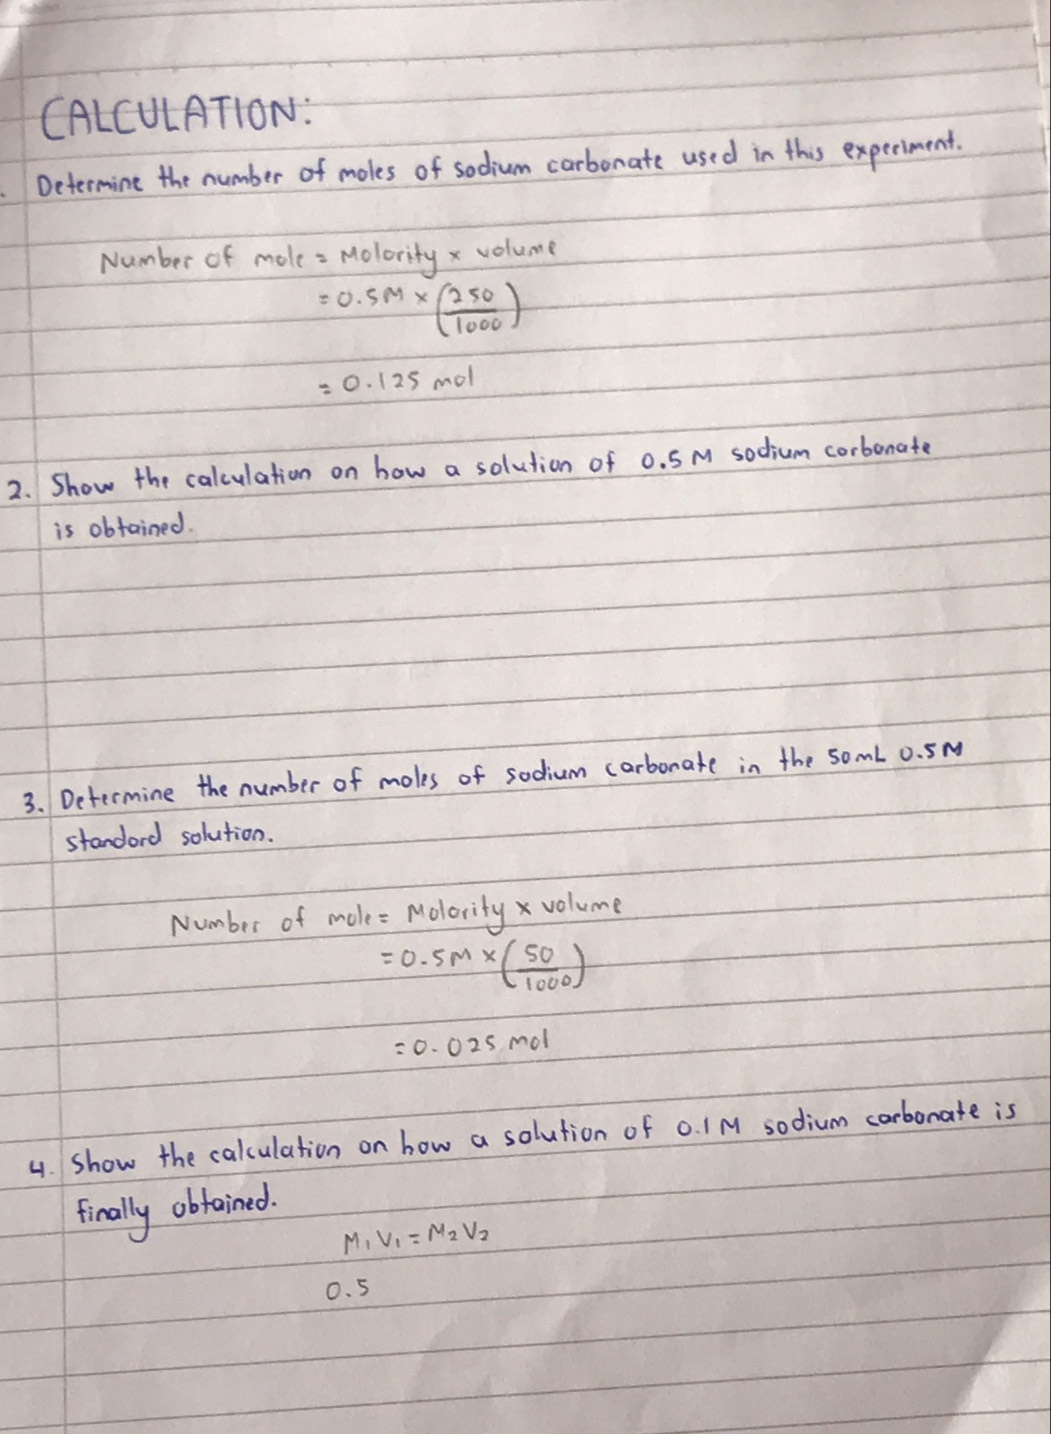 CALCULATION:
. Determine the number of moles of sodium carbonate used in this experiment.
Number of mole = Molarity × volume
= 0.5M × (250
1000)
= 0.125 mol
2. Show the calculation on how a solution of 0.5 M sodium carbonate
is obtained.
3. Determine the number of moles of sodium carbonate in the 50mL 0.5M
standard solution.
Number of mole = Molarity × volume
= 0.5M × (50
1000)
= 0.025 mol
4. Show the calculation on how a solution of 0.1M sodium carbonate is
finally obtained.
M₁V₁ = M₂V₂
0.5